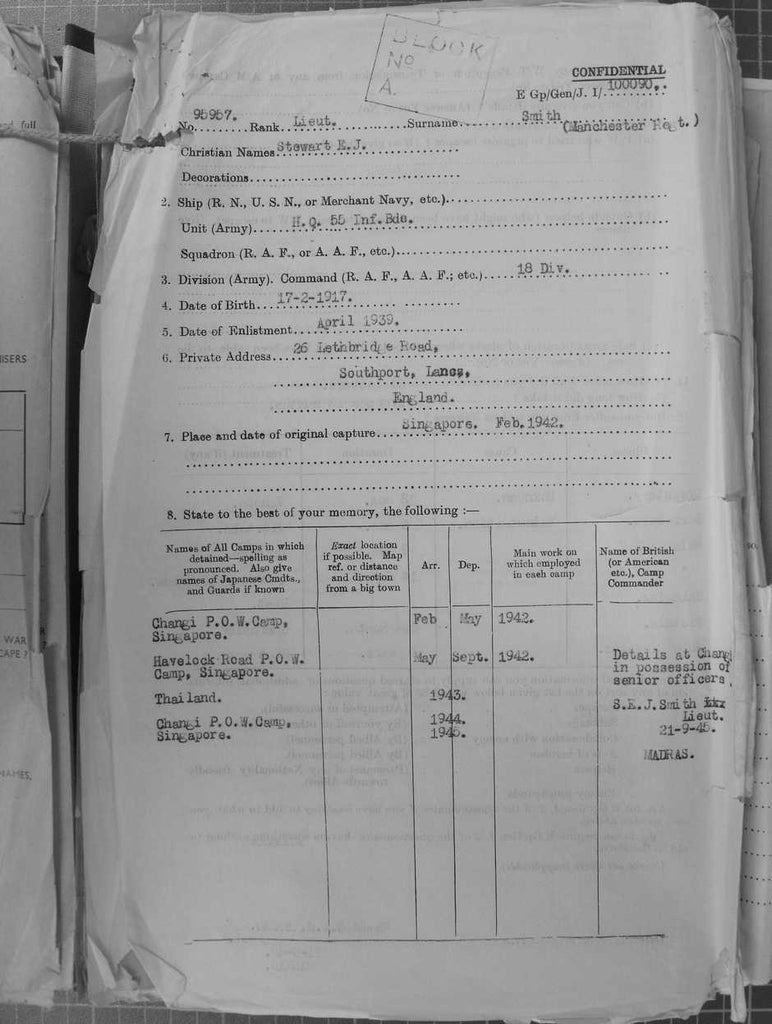 BLOCK
No
A.
CONFIDENTIAL
E Gp/Gen/J. I/ 100090.
No. 95957. Rank. Lieut. Surname. Smith (Manchester Regt.)
Christian Names. Stewart E.J.
Decorations.
2. Ship (R. N., U. S. N., or Merchant Navy, etc.)
Unit (Army). H.Q. 55 Inf.Bde.
Squadron (R. A. F., or A. A. F., etc.)
3. Division (Army). Command (R. A. F., A. A. F.; etc.) 18 Div.
4. Date of Birth. 17-2-1917.
5. Date of Enlistment. April 1939.
6. Private Address. 26 Lethbridge Road,
Southport, Lancs,
England.
7. Place and date of original capture. Singapore. Feb.1942.
8. State to the best of your memory, the following :—
Names of All Camps in which detained—spelling as pronounced. Also give names of Japanese Cmdts., and Guards if known
Exact location if possible. Map ref. or distance and direction from a big town
Arr.
Dep.
Main work on which employed in each camp
Name of British (or American etc.), Camp Commander
Changi P.O.W.Camp, Feb May 1942.
Singapore.
Havelock Road P.O.W. May Sept. 1942. Details at Changi
Camp, Singapore. in possession of
senior officers.
Thailand. 1943.
S.E.J.Smith
Lieut.
Changi P.O.W.Camp, 1944.
Singapore. 1945. 21-9-45.
MADRAS.
full
ISERS
WAR
CAPE ?
NAMES,